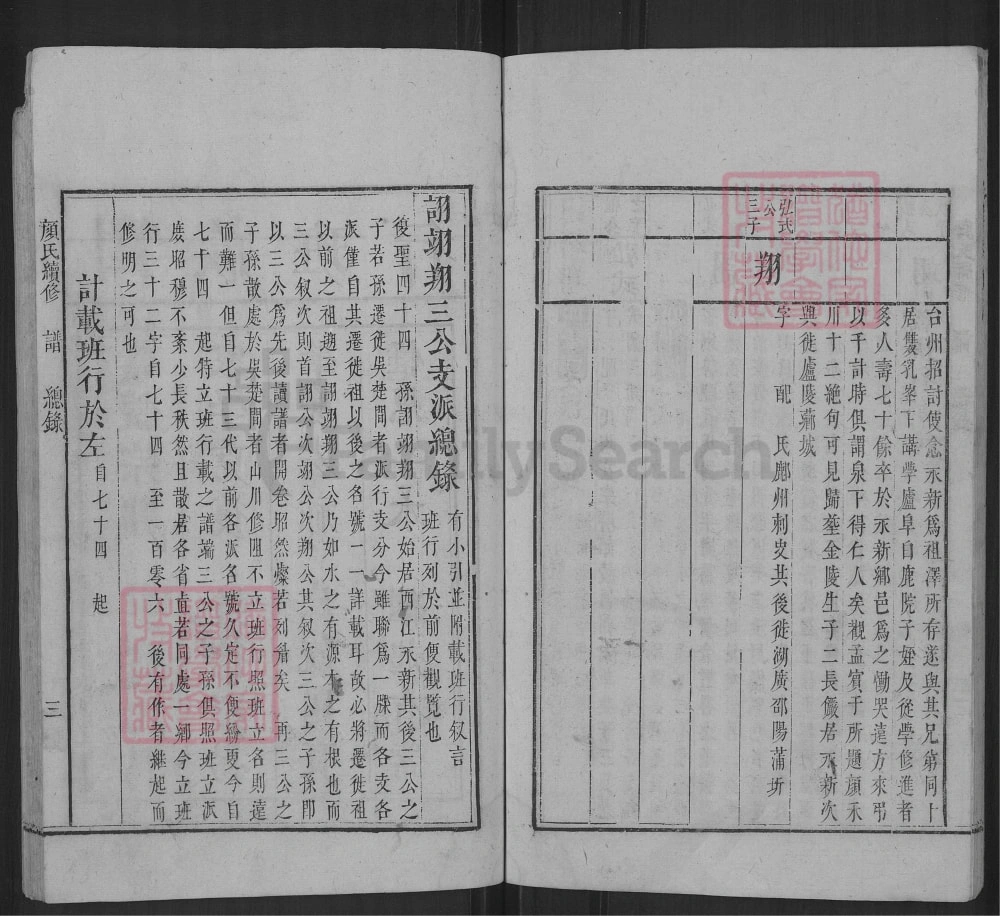 台州招討使念永新爲祖澤所存遂與其兄第同卜
居雙乳峯下講學廬阜白鹿院子姪及從學修進者
多人壽七十餘卒於永新鄉邑爲之慟哭遠方來弔
以千計時俱謂泉下得仁人矣觀孟賓于所題顏氶
川十二絶句可見歸塟金陵生子二長儼居永新次
興徙廬陵薌城
弘式公三子
翔
字 配 氏鄜州刺史其後徙湖廣邵陽蒲圻
詡翊翔三公支派總錄
有小引並附載班行叙言
班行列於前便觀覽也
復聖四十四 孫詡翊翔三公始居西江永新其後三公之
子若孫遷徙吳楚間者派行支分今雖聯爲一牒而各支各
派僅自其遷徙祖以後之名號一一詳載耳故必將遷徙祖
以前之祖遡至詡翊翔三公乃如水之有源木之有根也而
三公叙次則首詡公次翊公次翔公其叙次三公之子孫即
以三公爲先後讀譜者開卷昭然燦若列眉矣 再三公之
子孫散處於吳楚間者山川修阻不立班行照班立名則遠
而難一但自七十三代以前各派名號久定不便紛更今自
七十四 起特立班行載之譜端三公之子孫俱照班立派
庶昭穆不紊少長秩然且散居各省直若同處一鄉今立班
行三十二字自七十四 至一百零六 後有作者繼起而
修明之可也
計載班行於左 自七十四 起
顏氏續修 譜 總錄 三
FamilySearch